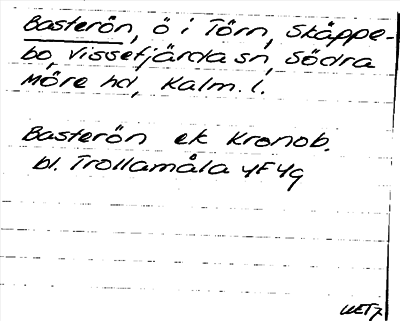 Basterön, ö i Törn, Skäppe-
bo, Vissefjärda sn, Södra
Möre hd, Kalm. l.
Basterön ek Kronob.
bl. Trollamåla 4F4g